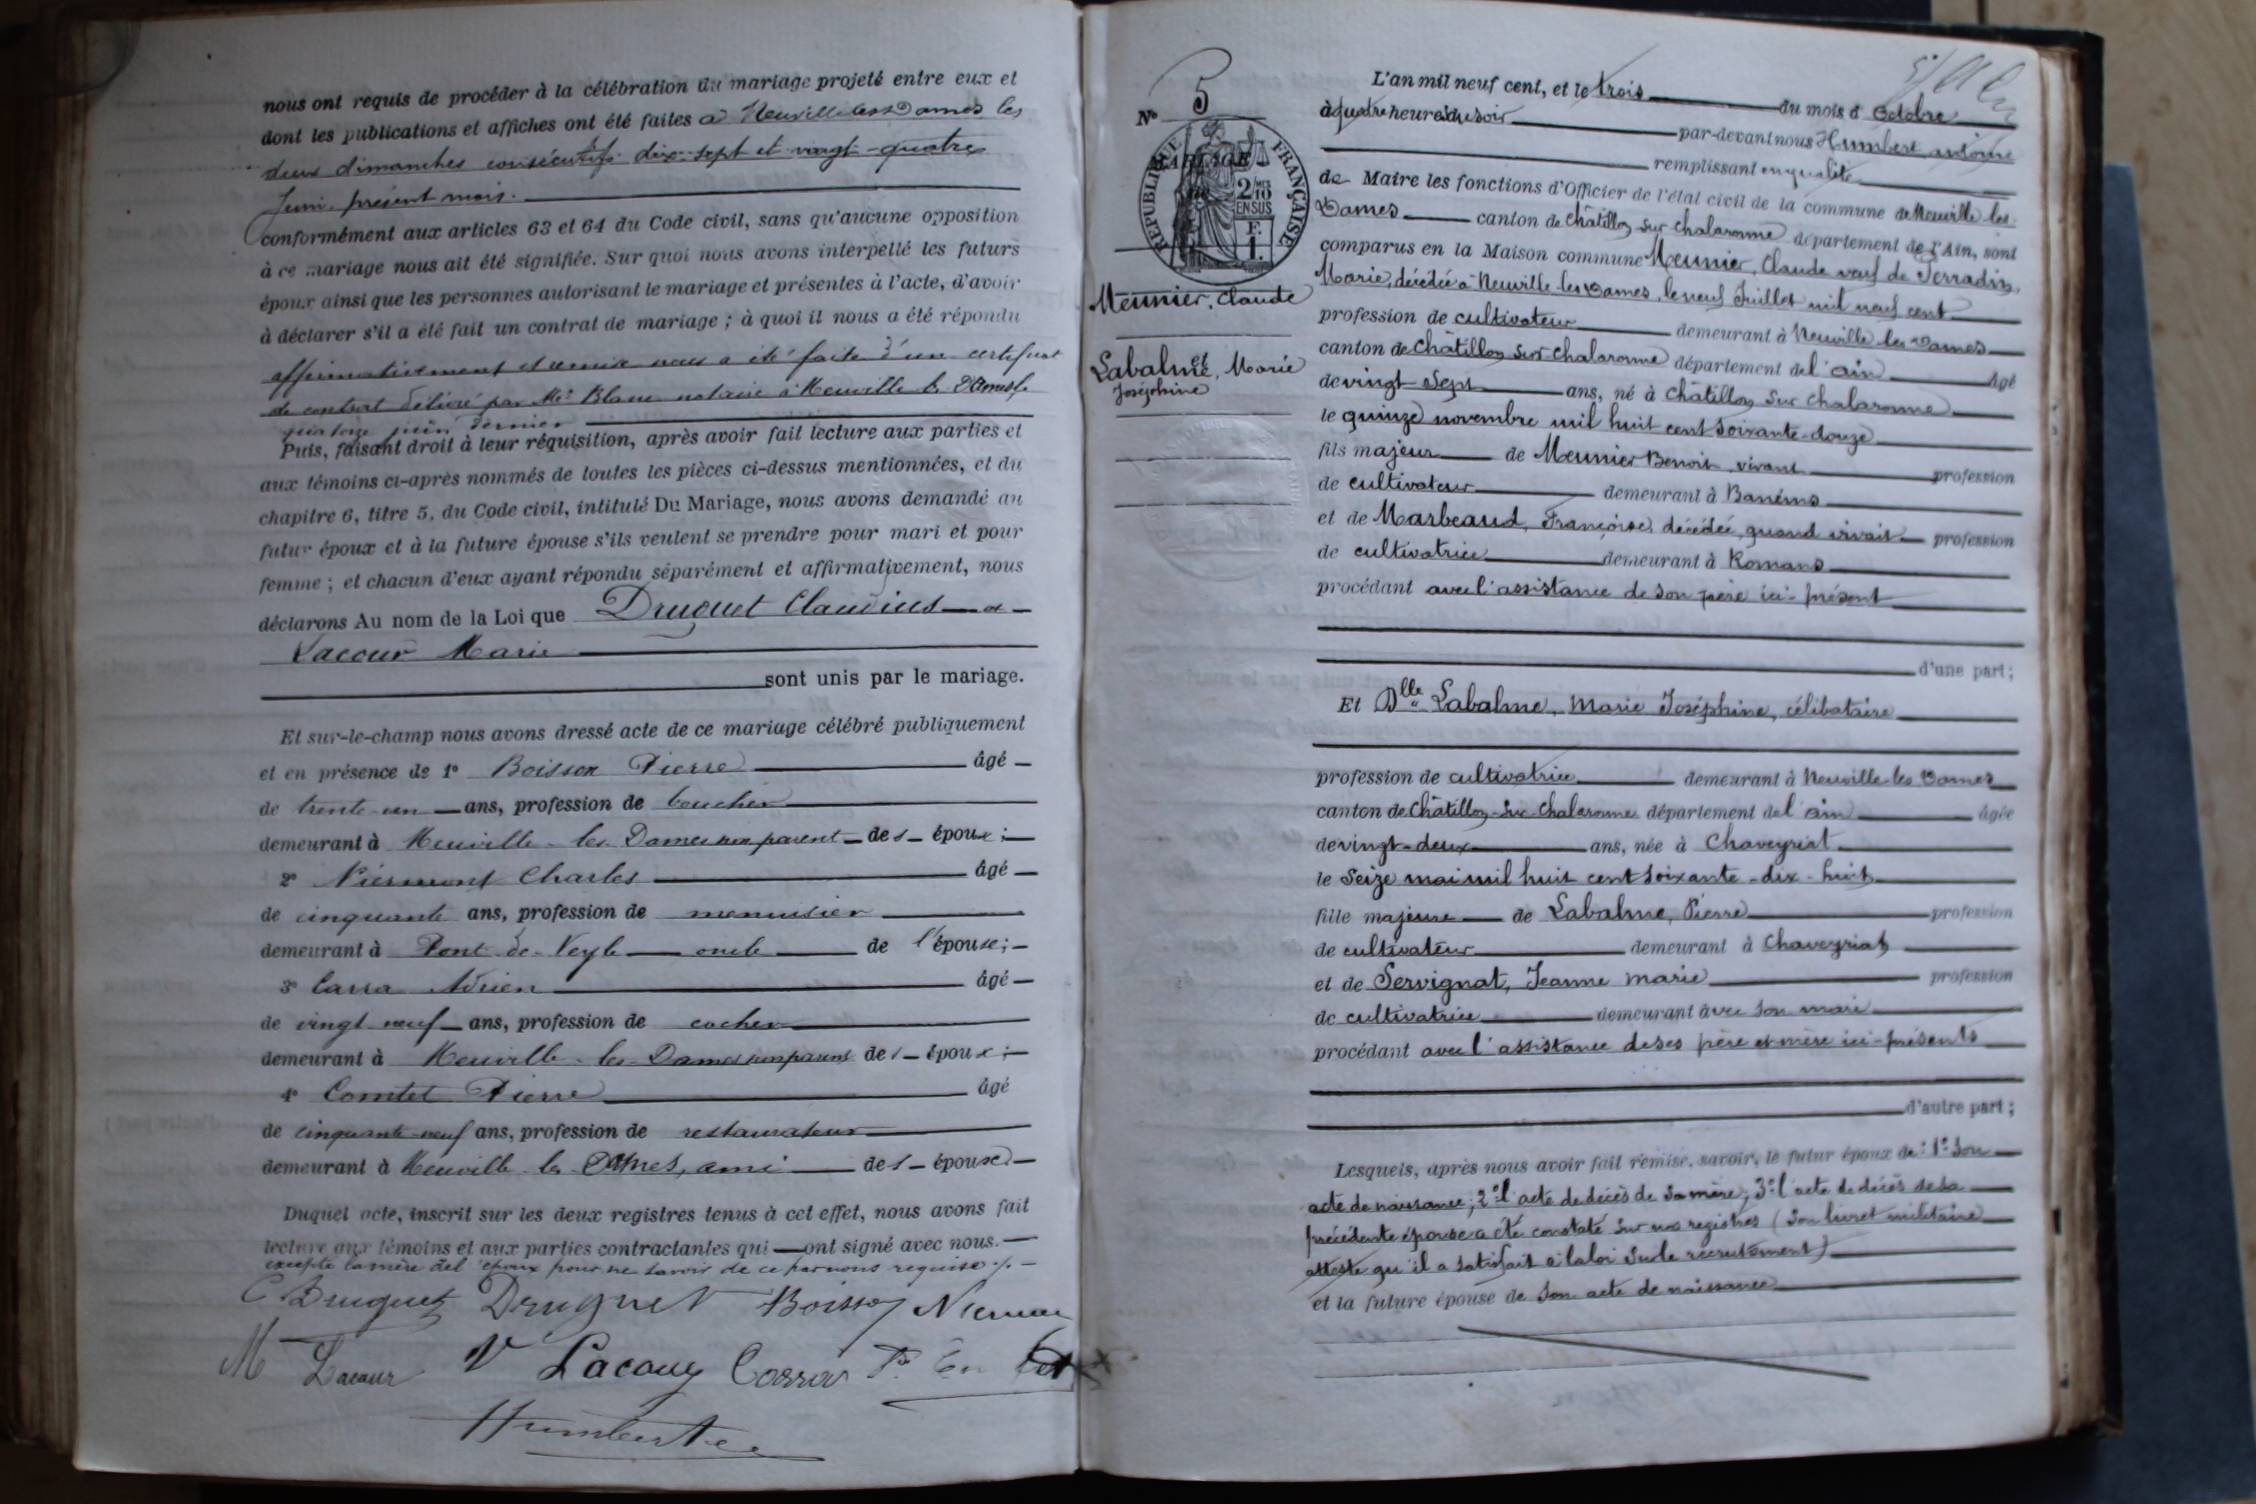 nous ont requis de procéder à la célébration du mariage projeté entre eux et
dont les publications et affiches ont été faites à Neuville les Dames les
deux dimanches consécutifs dix-sept et vingt-quatre
Juin présent mois.
conformément aux articles 63 et 64 du Code civil, sans qu'aucune opposition
à ce mariage nous ait été signifiée. Sur quoi nous avons interpellé les futurs
époux ainsi que les personnes autorisant le mariage et présentes à l'acte, d'avoir
à déclarer s'il a été fait un contrat de mariage ; à quoi il nous a été répondu
affirmativement et remise nous a été faite d'un certificat
de contrat délivré par Me Blanc notaire à Neuville les Dames le
quatorze juin dernier
Puis, faisant droit à leur réquisition, après avoir fait lecture aux parties et
aux témoins ci-après nommés de toutes les pièces ci-dessus mentionnées, et du
chapitre 6, titre 5, du Code civil, intitulé Du Mariage, nous avons demandé au
futur époux et à la future épouse s'ils veulent se prendre pour mari et pour
femme ; et chacun d'eux ayant répondu séparément et affirmativement, nous
déclarons Au nom de la Loi que Druguet Claudius et
Lacour Marie
sont unis par le mariage.
Et sur-le-champ nous avons dressé acte de ce mariage célébré publiquement
et en présence de 1° Boisson Pierre âgé
de trente-un ans, profession de boucher
demeurant à Neuville-les-Dames non parent des époux ;
2° Niermont Charles âgé
de cinquante ans, profession de menuisier
demeurant à Pont-de-Veyle oncle de l'épouse ;
3° Carra Adrien âgé
de vingt neuf ans, profession de cocher
demeurant à Neuville-les-Dames non parent des époux ;
4° Comtet Pierre âgé
de cinquante-neuf ans, profession de restaurateur
demeurant à Neuville-les-Dames, ami des époux
Duquel acte, inscrit sur les deux registres tenus à cet effet, nous avons fait
lecture aux témoins et aux parties contractantes qui ont signé avec nous.
excepté la mère de l'époux pour ne savoir de ce par nous requise
C Druguet Druguet Boisson
M Lacour Vve Lacour Carra
Humbert
N° 5
RÉPUBLIQUE FRANÇAISE
2 10
EN SUS
F.
1.
Meunier, Claude
et
Labalme, Marie
Joséphine
L'an mil neuf cent, et le trois du mois d'Octobre
à quatre heures du soir par-devant nous Humbert antoine
remplissant en qualité
de Maire les fonctions d'Officier de l'état civil de la commune de Neuville-les-
Dames canton de Châtillon sur Chalaronne département de l'Ain, sont
comparus en la Maison commune Meunier, Claude veuf de Terradin,
Marie, décédée à Neuville-les-Dames, le neuf Juillet mil neuf cent
profession de cultivateur demeurant à Neuville les Dames
canton de Châtillon sur Chalaronne département de l'ain âgé
de vingt-sept ans, né à Châtillon sur Chalaronne
le quinze novembre mil huit cent soixante-douze
fils majeur de Meunier Benoit, vivant profession
de cultivateur demeurant à Banéins
et de Marbeaud, Françoise, décédée quand vivait profession
de cultivatrice demeurant à Romans
procédant avec l'assistance de son père ici-présent
d'une part ;
Et Dlle Labalme, Marie Joséphine, célibataire
profession de cultivatrice demeurant à Neuville-les-Dames
canton de Châtillon-sur-Chalaronne département de l'ain âgée
de vingt-deux ans, née à Chaveyriat
le seize mai mil huit cent soixante-dix-huit
fille majeure de Labalme, Pierre profession
de cultivateur demeurant à Chaveyriat
et de Servignat, Jeanne marie profession
de cultivatrice demeurant avec son mari
procédant avec l'assistance de ses père et mère ici-présents
d'autre part ;
Lesquels, après nous avoir fait remise, savoir, le futur époux de : 1° Son
acte de naissance ; 2° l'acte de décès de sa mère ; 3° l'acte de décès de sa
précédente épouse a été constaté sur nos registres (son livret militaire
atteste qu'il a satisfait à la loi sur le recrutement)
et la future épouse de son acte de naissance